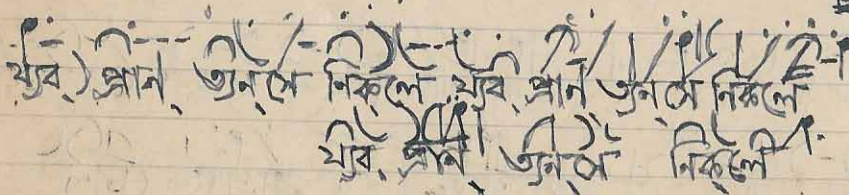 য্যব্ প্রান্ ত্যন্‌সে নিক্‌লে য্যব্ প্রান্ ত্যন্‌সে নিক্‌লে
য্যব্ প্রান্ ত্যন্‌সে নিক্‌লে